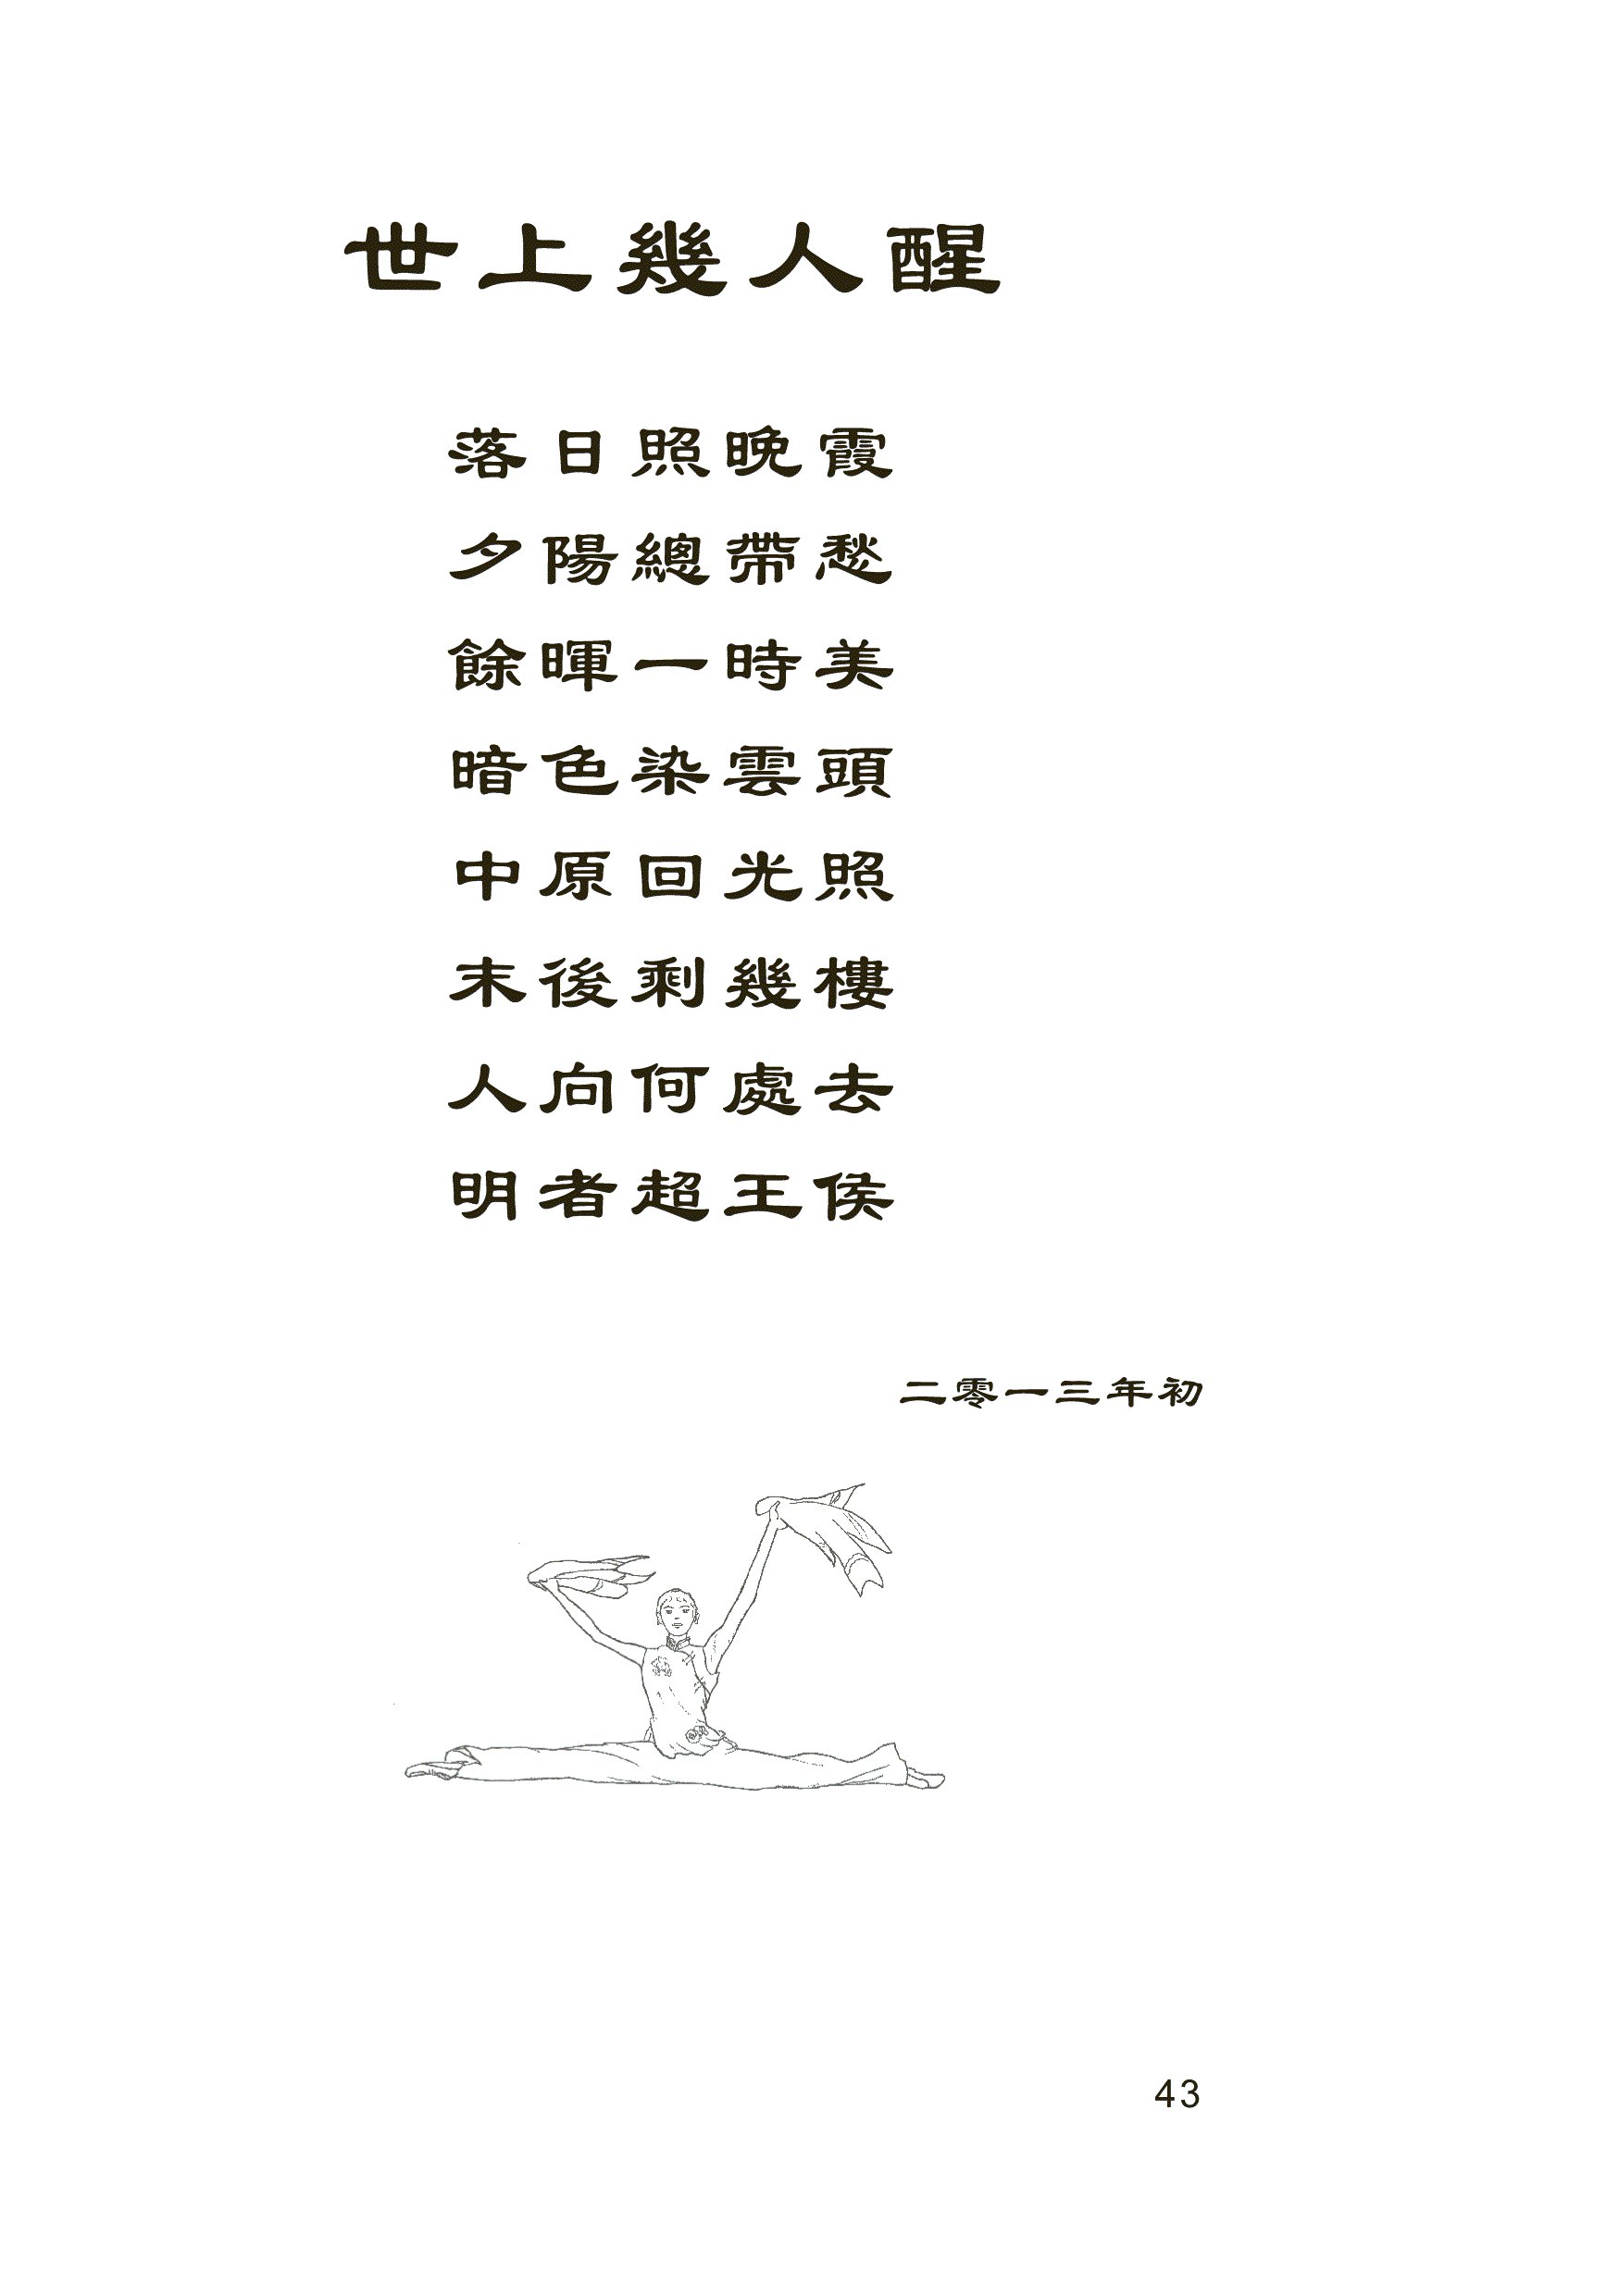 世上幾人醒
落日照晚霞
夕陽總帶愁
餘暉一時美
暗色染雲頭
中原回光照
末後剩幾樓
人向何處去
明者超王侯
二零一三年初
43